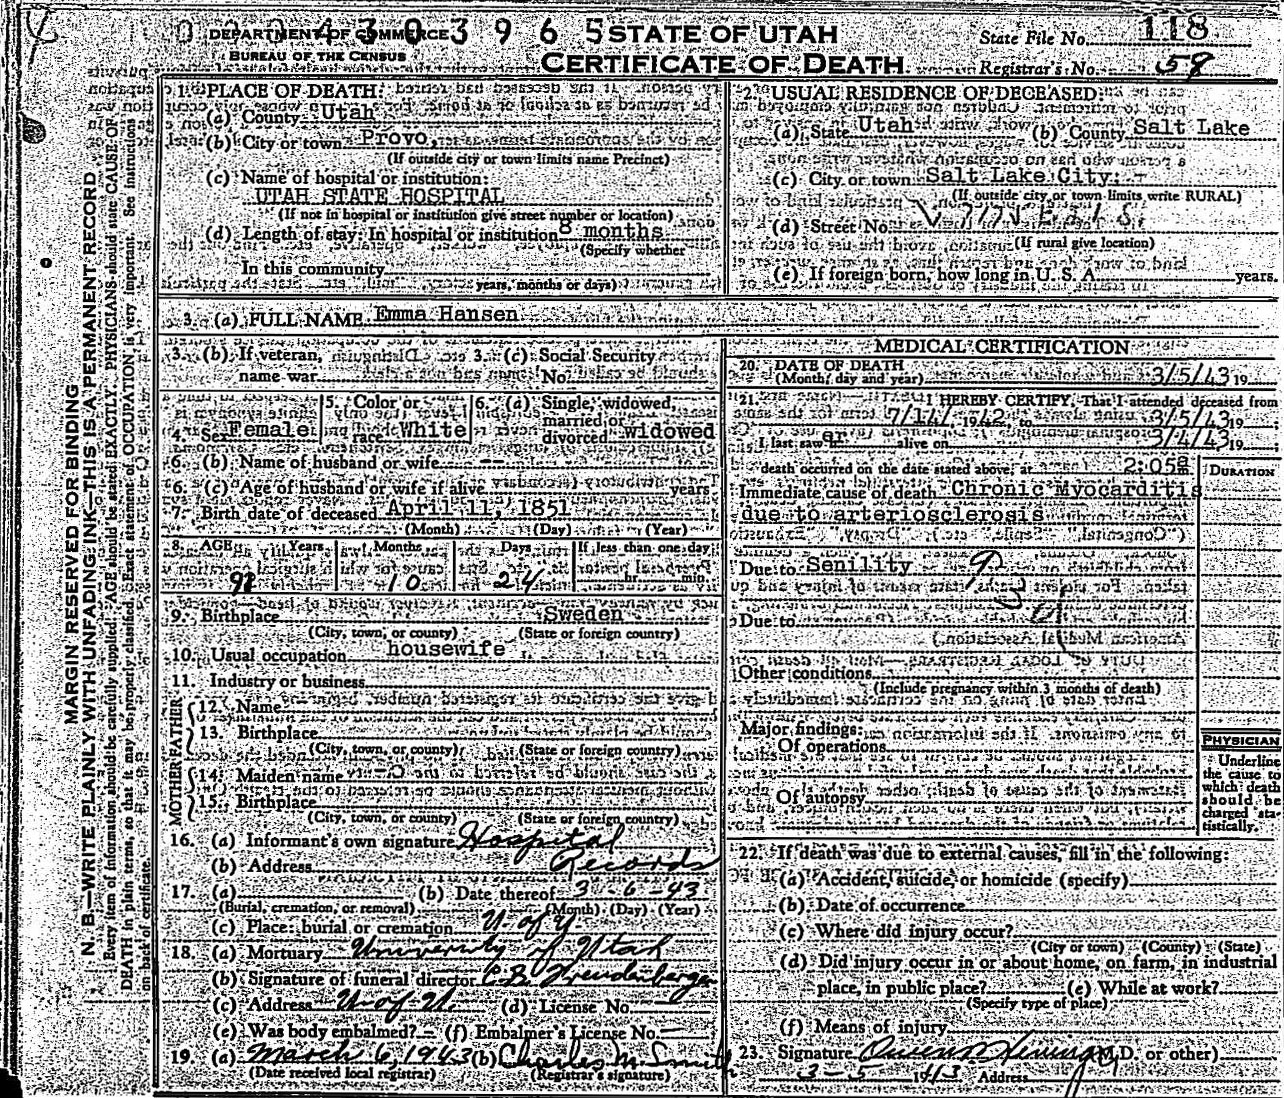 0 2 0 4 3 0 3 9 6 5
DEPARTMENT OF COMMERCE
BUREAU OF THE CENSUS
STATE OF UTAH
CERTIFICATE OF DEATH
State File No. 118
Registrar's No. 58
MARGIN RESERVED FOR BINDING
N. B.—WRITE PLAINLY WITH UNFADING INK—THIS IS A PERMANENT RECORD
Every item of information should be carefully supplied. AGE should be stated EXACTLY. PHYSICIANS should state CAUSE OF
DEATH in plain terms, so that it may be properly classified. Exact statement of OCCUPATION is very important. See instructions
on back of certificate.
1. PLACE OF DEATH:
(a) County Utah
(b) City or town Provo,
(If outside city or town limits name Precinct)
(c) Name of hospital or institution:
UTAH STATE HOSPITAL
(If not in hospital or institution give street number or location)
(d) Length of stay: In hospital or institution 8 months
(Specify whether
In this community
years, months or days)
2. USUAL RESIDENCE OF DECEASED:
(a) State Utah (b) County Salt Lake
(c) City or town Salt Lake City
(If outside city or town limits write RURAL)
(d) Street No.
(If rural give location)
(e) If foreign born, how long in U. S. A. years.
3. (a) FULL NAME Emma Hansen
3. (b) If veteran, name war
3. (c) Social Security No.
4. Sex Female
5. Color or race White
6. (a) Single, widowed, married or divorced widowed
6. (b) Name of husband or wife --
6. (c) Age of husband or wife if alive years
7. Birth date of deceased April 11, 1851
(Month) (Day) (Year)
8. AGE Years Months Days If less than one day
10 24 hr. min.
9. Birthplace Sweden
(City, town, or county) (State or foreign country)
10. Usual occupation housewife
11. Industry or business
FATHER
12. Name
13. Birthplace
(City, town, or county) (State or foreign country)
MOTHER
14. Maiden name
15. Birthplace
(City, town, or county) (State or foreign country)
16. (a) Informant's own signature Hospital
(b) Address Records
17. (a) (b) Date thereof 3-6-43
(Burial, cremation, or removal) (Month) (Day) (Year)
(c) Place: burial or cremation U. of U.
18. (a) Mortuary University of Utah
(b) Signature of funeral director C.B. Freudenberger
(c) Address U. of U. (d) License No.
(e) Was body embalmed? – (f) Embalmer's License No. —
19. (a) March 6, 1943 (b) Charles M Smith
(Date received local registrar) (Registrar's signature)
MEDICAL CERTIFICATION
20. DATE OF DEATH
(Month, day and year) 3/5/43 19
21. I HEREBY CERTIFY, That I attended deceased from
7/14/ 1942 to 3/5/43 19 ;
I last saw er alive on 3/4/43 19 ;
death occurred on the date stated above, at 2:05a
DURATION
Immediate cause of death Chronic Myocarditis
due to arteriosclerosis
Due to Senility
Due to
Other conditions
(Include pregnancy within 3 months of death)
Major findings:
Of operations
Of autopsy
PHYSICIAN
Underline
the cause to
which death
should be
charged sta-
tistically.
22. If death was due to external causes, fill in the following:
(a) Accident, suicide, or homicide (specify)
(b) Date of occurrence
(c) Where did injury occur?
(City or town) (County) (State)
(d) Did injury occur in or about home, on farm, in industrial
place, in public place? (e) While at work?
(Specify type of place)
(f) Means of injury
23. Signature (M.D. or other)
3-5 1943 Address